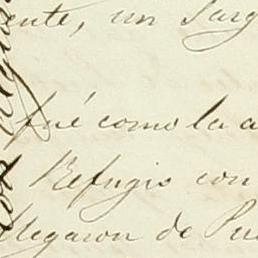 ente, un Sarg
fué como la a
Refugio con
llegaron de Pue